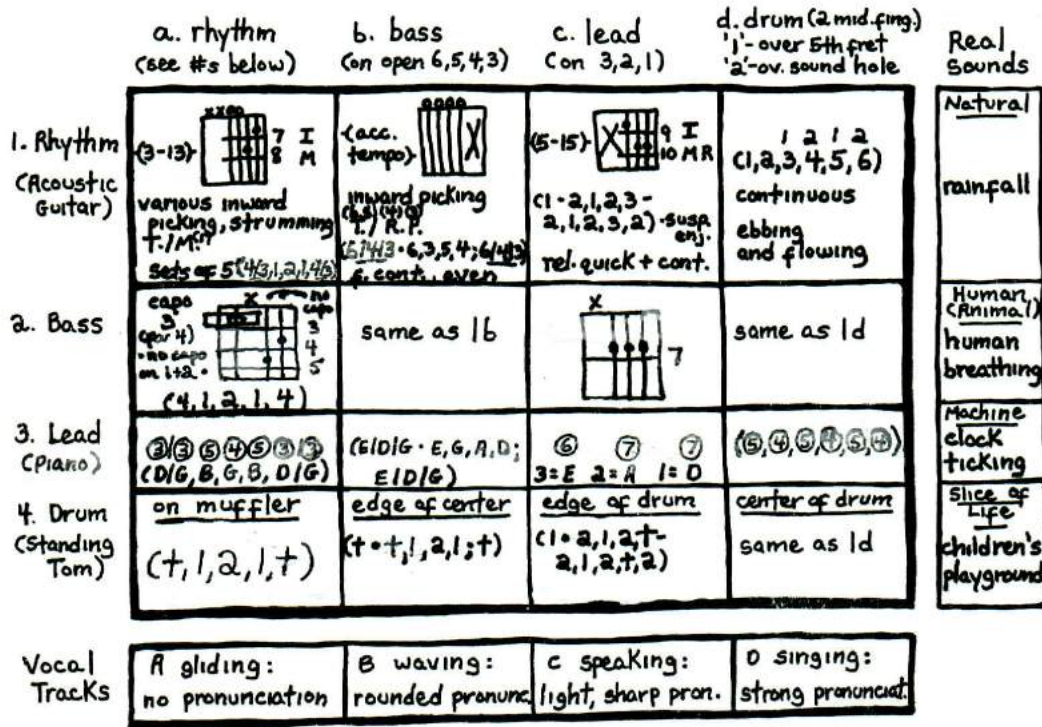 a. rhythm
(see #s below)
b. bass
(on open 6,5,4,3)
c. lead
(on 3,2,1)
d. drum (2 mid.fing.)
'1'-over 5th fret
'2'-ov. sound hole
Real
Sounds
1. Rhythm
(Acoustic
Guitar)
xxoo
(3-13)
7 I
8 M
various inward
picking, strumming
sets of 5
oooo
(acc.
tempo)
X
inward picking
T./ R.P.
cont., even
(5-15)
X
9 I
10 M R
(1 - 2,1,2,3 -
2,1,2,3,2) -susp.
enj.
rel. quick + cont.
1 2 1 2
(1,2,3,4,5,6)
continuous
ebbing
and flowing
Natural
rainfall
2. Bass
capo
3
(par 4)
- no capo
on 1+2 -
x
no
capo
3
4
5
(4,1,2,1,4)
same as 1b
x
7
same as 1d
Human
(Animal)
human
breathing
3. Lead
(Piano)
(D/G, B, G, B, D/G)
(E/D/G · E, G, A, D;
E/D/G)
6 7 7
3=E 2=A 1=D
(5,4,5,4,5,4)
Machine
clock
ticking
4. Drum
(Standing
Tom)
on muffler
(t,1,2,1,t)
edge of center
(t · t,1,2,1;t)
edge of drum
(1 · 2,1,2,t-
2,1,2,t,2)
center of drum
same as 1d
Slice of
Life
children's
playground
Vocal
Tracks
A gliding:
no pronunciation
B waving:
rounded pronunc.
C speaking:
light, sharp pron.
D singing:
strong pronunciat.